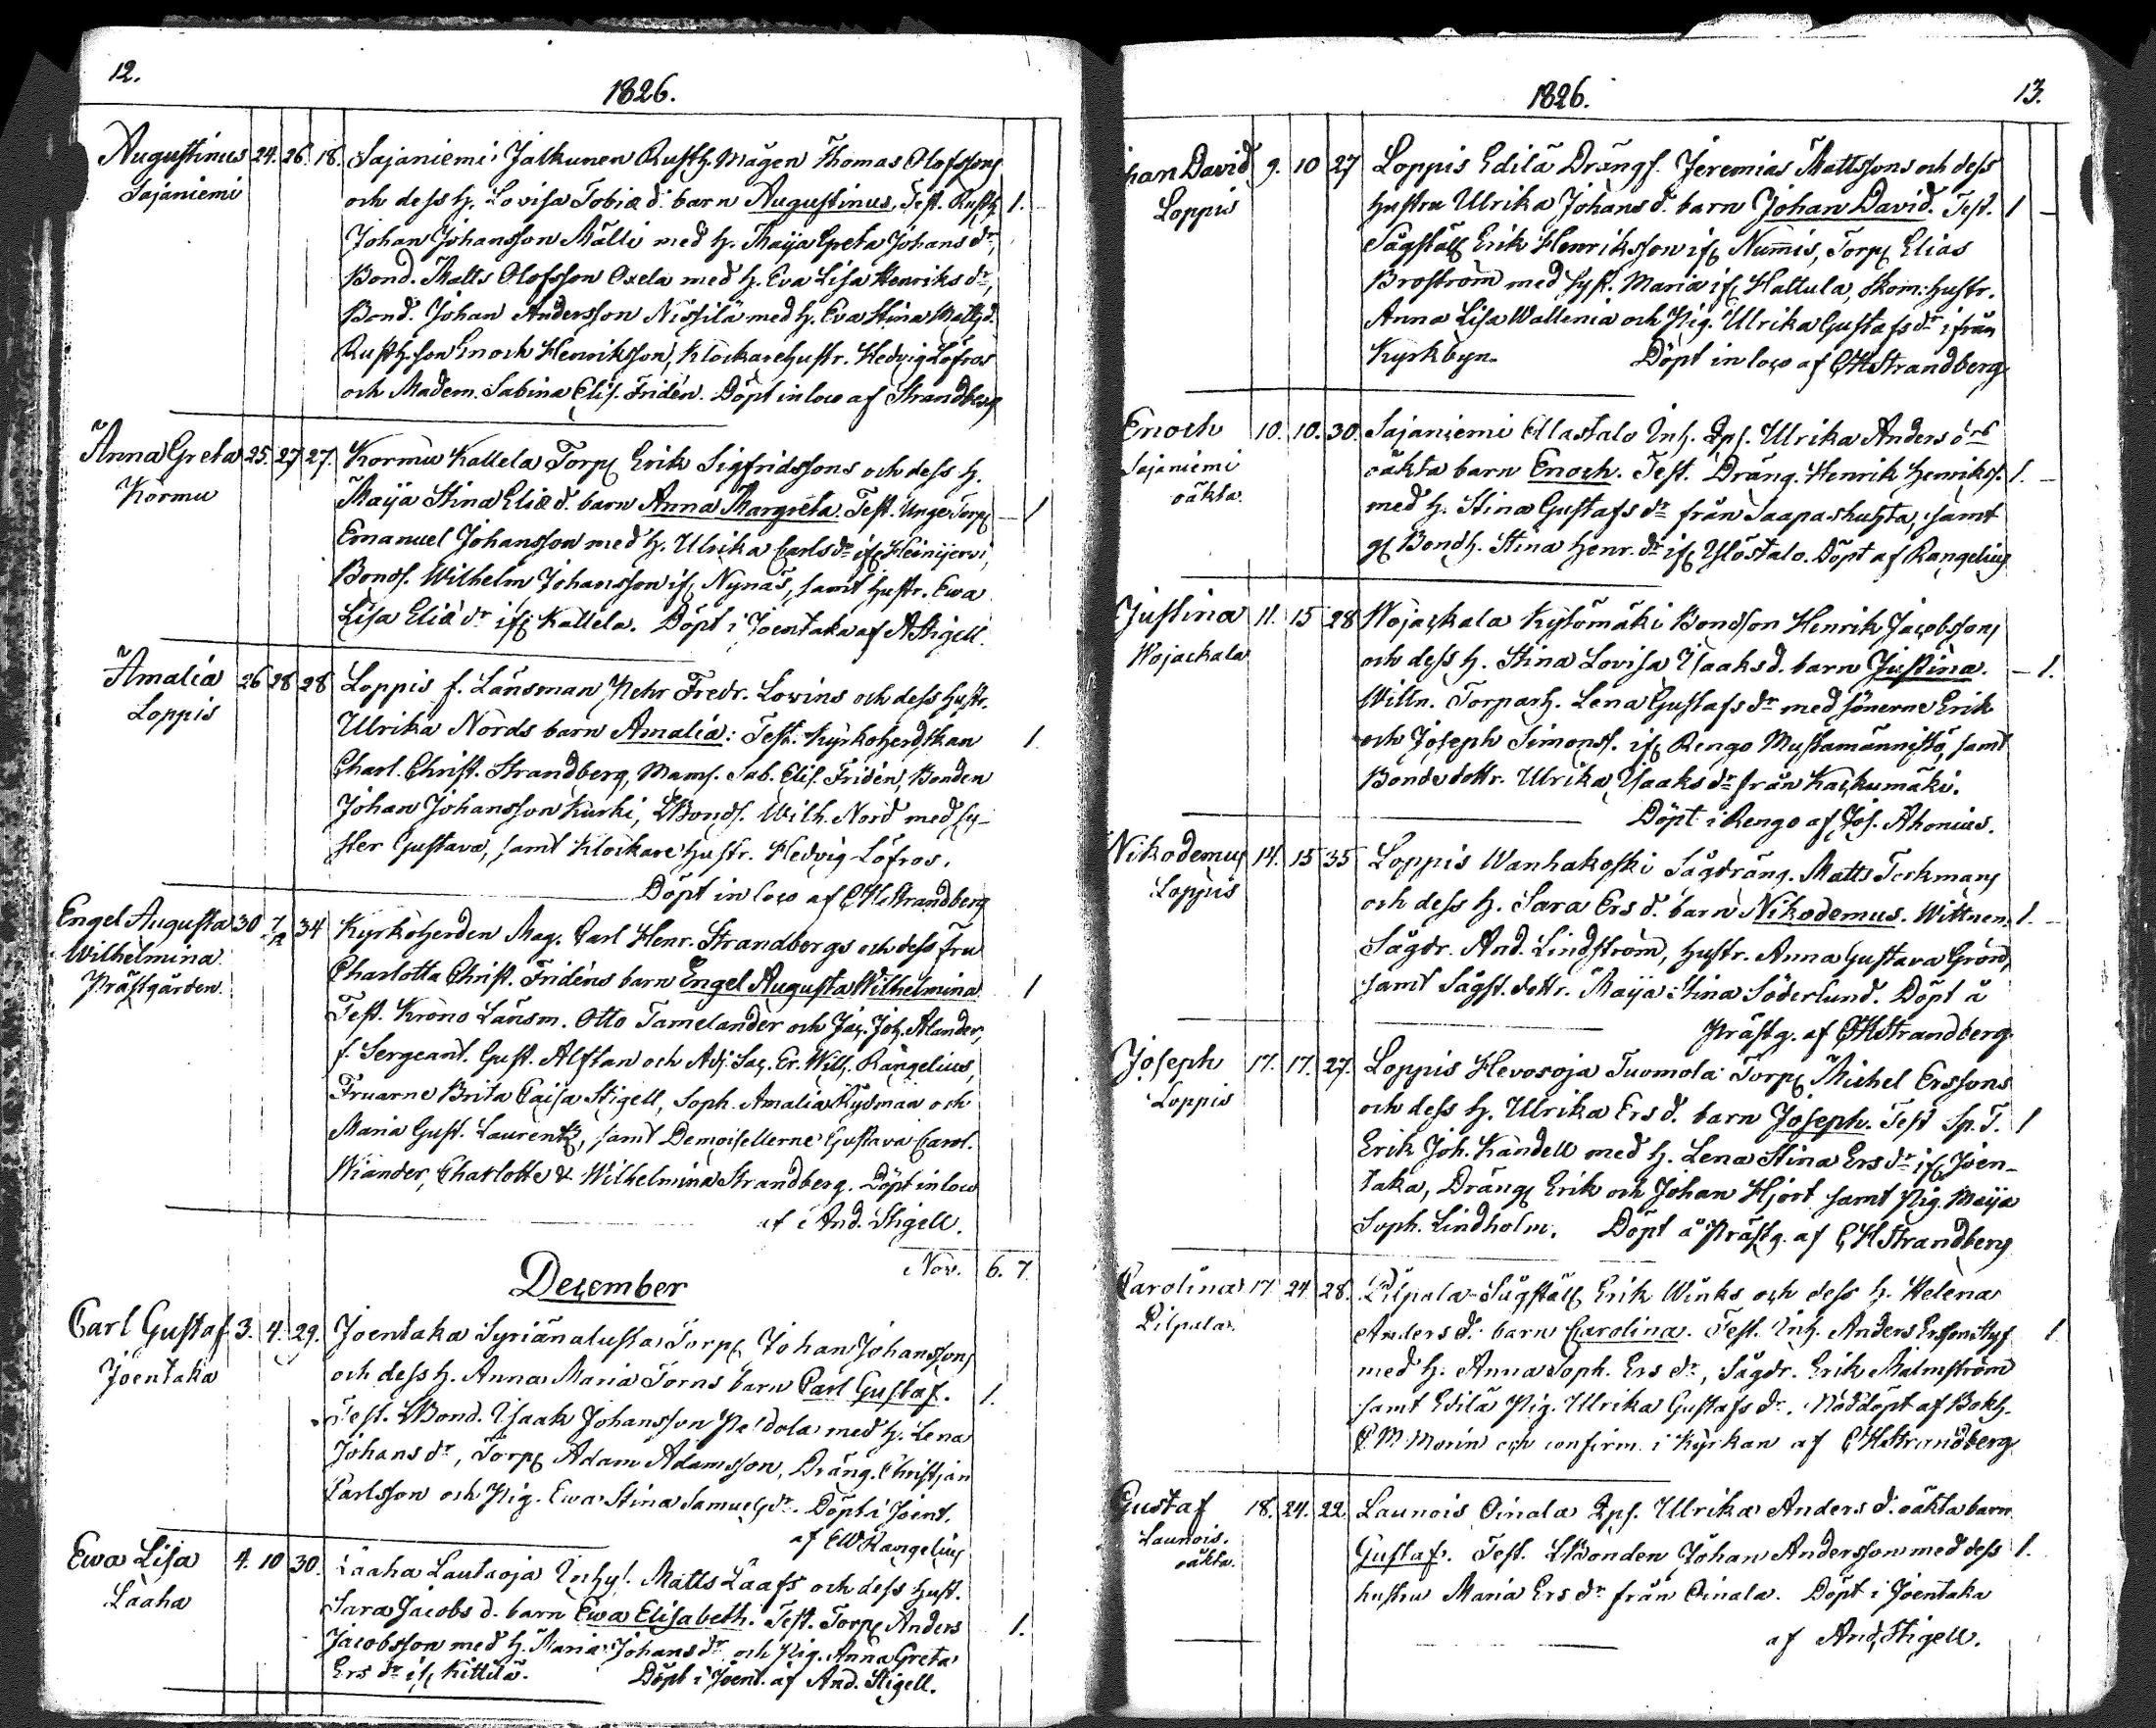 12.
1826.
Augustinus 24. 26. 18. Sajaniemi Jalkunen Rusth. Mågen Thomas Olofssons
Sajaniemi och dess h. Lovisa Tobiæ d. barn Augustinus. Test. Rusth. 1.
Johan Johansson Mälli med h. Maija Greta Johans dr,
Bond. Matts Olofsson Oxela med h. Eva Lisa Henriks dr,
Bond. Johan Andersson Nissilä med h. Eva Stina Matts d.
Rusth. son Enoch Henriksson, Klockarehustr. Hedvig Löfros
och Madem. Sabina Elis. Fridén. Döpt in loco af Strandberg
Anna Greta 25. 27 27. Kormu Kallela Torp. Erik Sigfridssons och dess h.
Kormu Maija Stina Eliæ d. barn Anna Margreta. Test. Unge Torp. – 1
Emanuel Johansson med h. Ulrika Carls dr if. Heinijervi,
Bonds. Wilhelm Johansson if. Nynäs, samt hustr. Ewa
Lisa Eliæ dr if. Kallela. Döpt i Joentaka af A Stigell.
Amalia 26 28 28 Loppis f. Länsman Herr Fredr. Lovins och dess hustr.
Loppis Ulrika Nords barn Amalia: Test. Kyrkoherdskan 1.
Charl. Christ. Strandberg, Mams. Sab. Elis. Fridén, Bonden
Johan Johansson Kurki, LBonds. Wilh. Nord med sy-
ster Gustava, samt Klockare hustr. Hedvig Löfros.
Döpt in loco af CHStrandberg
Engel Augusta 30 7/12 34 Kyrkoherden Mag. Carl Henr. Strandbergs och dess Fru
Wilhelmina Charlotta Christ. Fridéns barn Engel Augusta Wilhelmina 1
Prästgården. Test. Krono Länsm. Otto Tamelander och Jac. Joh. Alander,
f. Sergeant. Gust. Alftan och Adj. Sac. Er. Wilh. Rangelius,
Fruarne Brita Caisa Stigell, Soph. Amalia Rydman och
Maria Gust. Laurentz, samt Demoisellerne Gustava Carol.
Wiander, Charlotte & Wilhelmina Strandberg. Döpt in loco
af And. Stigell.
Nov. 6. 7.
December
Carl Gustaf 3. 4. 29. Joentaka Syriänalusta Torp. Johan Johanssons
Joentaka och dess h. Anna Maria Torns barn Carl Gustaf. 1.
Test. LBond. Isaak Johansson Peldola med h. Lena
Johans dr, Torp. Adam Adamsson, Dräng. Christian
Carlsson och Pig. Ewa Stina Samuels dr. Döpt i Joent.
af EWRangelius
Ewa Lisa 4. 10 30. Läaha Lautaoja Inhys. Matts Laafs och dess hust.
Läaha Sara Jacobs d. barn Ewa Elisabeth. Test. Torp. Anders 1.
Jacobsson med h. Maria Johans dr och Pig. Anna Greta
Ers dr if. Kittilä. Döpt i Joent. af And. Stigell.
1826. 13.
han David 9. 10 27 Loppis Edilä Drängs. Jeremias Mattssons och dess
Loppis hustru Ulrika Johans d. barn Johan David. Test. 1 –
Sågställ. Erik Henriksson if. Nummis, Torp. Elias
Broström med syst. Maria if. Hattula, Skom. hustr.
Anna Lisa Wallenia och Pig. Ulrika Gustafs dr ifrån
Kyrkbyn. Döpt in loco af CHStrandberg
Enoch 10. 10. 30. Sajaniemi Alastalo Inh. Qps. Ulrika Anders drs
Sajaniemi oäkta barn Enoch. Test. Dräng. Henrik Henrikss. 1. –
oäkta. med h. Stina Gustafs dr från Saapashuhta, samt
gl. Bondh. Stina Henr. dr if. Ylöstalo. Döpt af Rangelius
Justina 11. 15 28 Wojackala Kytömäki Bondson Henrik Jacobssons
Wojackala och dess h. Stina Lovisa Isaaks d. barn Justina. – 1.
Willn. Torparh. Lena Gustafs dr med sönerne Erik
och Joseph Simonss. if. Rengo Mustamännistö, samt
Bondedottr. Ulrika Isaaks dr från Kackumäki.
Döpt i Rengo af Jos. Ahonius.
Nikodemus 14. 15 35 Loppis Wanhakoski Sågdräng. Matts Torkmans
Loppis och dess h. Sara Ers d. barn Nikodemus. Wittnen. 1. –
Sågdr. And. Lindström, hustr. Anna Gustava Grönd,
samt Sågst. dottr. Maija Stina Söderlund. Döpt å
Prästg. af CHStrandberg.
Joseph 17. 17. 27. Loppis Hevosoja Tuomola Torp. Michel Erssons
Loppis och dess h. Ulrika Ers d. barn Joseph. Test Sp. T. 1
Erik Joh. Kandell med h. Lena Stina Ers dr if. Joen-
taka, Dräng. Erik och Johan Hjort samt Pig. Maija
Soph. Lindholm. Döpt å Prästg. af CHStrandberg
Carolina 17 24 28. Pilpala Sågställ. Erik Winks och dess h. Helena
Pilpala. Anders d. barn Carolina. Test. Inh. Anders Ersson Styf 1.
med h. Anna Soph. Ers dr, Sågdr. Erik Malmström
samt Edilä Pig. Ulrika Gustafs dr. Nöddöpt af Bokh.
C. M. Morin och confirm. i Kyrkan af CHStrandberg
Gustaf 18. 24. 22. Launois Oinala Qps. Ulrika Anders d. oäkta barn
Launois. Gustaf. Test. LBonden Johan Andersson med dess 1.
oäkta. hustru Maria Ers dr från Oinala. Döpt i Joentaka
af And. Stigell.